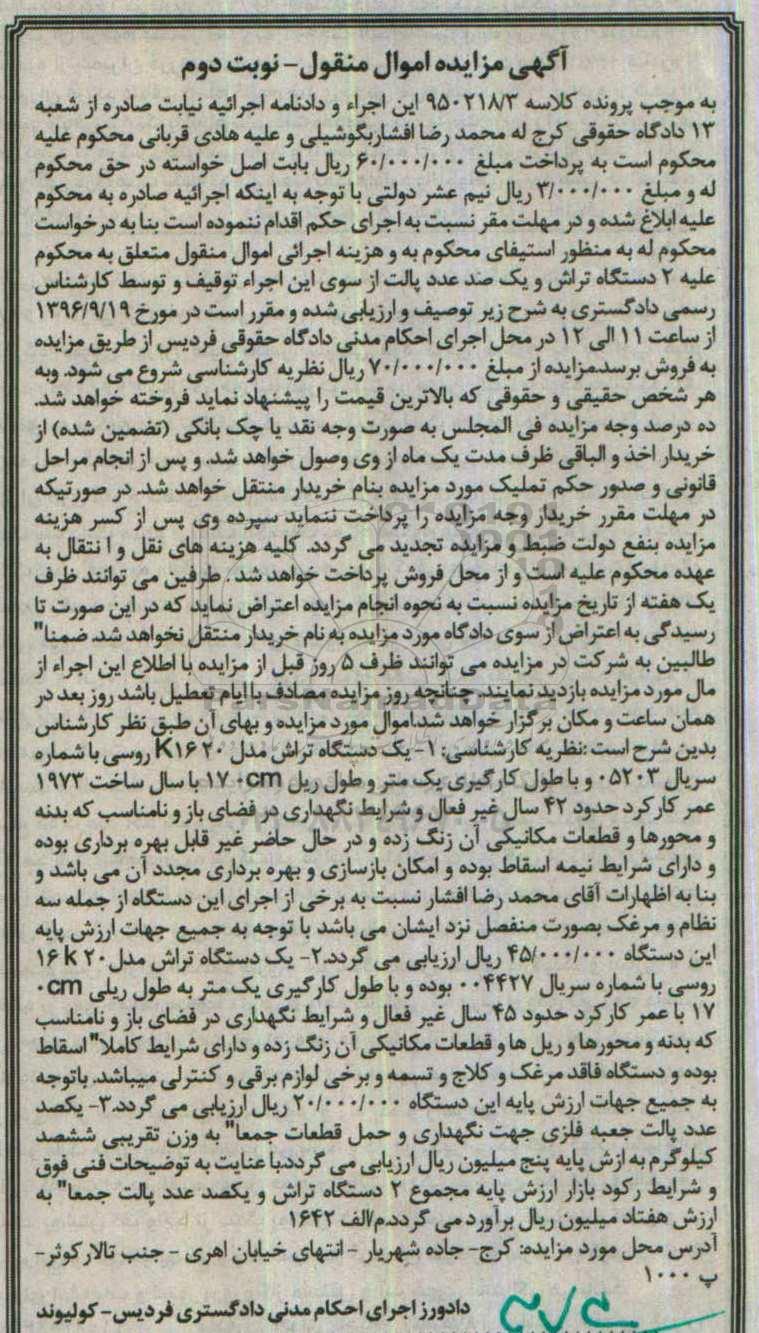 آگهی مزایده اموال منقول- نوبت دوم
به موجب پرونده کلاسه ۹۵۰۲۱۸/۳ این اجراء و دادنامه اجرائیه نیابت صادره از شعبه
۱۳ دادگاه حقوقی کرج له محمد رضا افشاربگوشیلی و علیه هادی قربانی محکوم علیه
محکوم است به پرداخت مبلغ ۶۰/۰۰۰/۰۰۰ ریال بابت اصل خواسته در حق محکوم
له و مبلغ ۳/۰۰۰/۰۰۰ ریال نیم عشر دولتی با توجه به اینکه اجرائیه صادره به محکوم
علیه ابلاغ شده و در مهلت مقر نسبت به اجرای حکم اقدام ننموده است بنا به درخواست
محکوم له به منظور استیفای محکوم به و هزینه اجرائی اموال منقول متعلق به محکوم
علیه ۲ دستگاه تراش و یک صد عدد پالت از سوی این اجراء توقیف و توسط کارشناس
رسمی دادگستری به شرح زیر توصیف و ارزیابی شده و مقرر است در مورخ ۱۳۹۶/۹/۱۹
از ساعت ۱۱ الی ۱۲ در محل اجرای احکام مدنی دادگاه حقوقی فردیس از طریق مزایده
به فروش برسد.مزایده از مبلغ ۷۰/۰۰۰/۰۰۰ ریال نظریه کارشناسی شروع می شود. وبه
هر شخص حقیقی و حقوقی که بالاترین قیمت را پیشنهاد نماید فروخته خواهد شد.
ده درصد وجه مزایده فی المجلس به صورت وجه نقد یا چک بانکی (تضمین شده) از
خریدار اخذ و الباقی ظرف مدت یک ماه از وی وصول خواهد شد. و پس از انجام مراحل
قانونی و صدور حکم تملیک مورد مزایده بنام خریدار منتقل خواهد شد. در صورتیکه
در مهلت مقرر خریدار وجه مزایده را پرداخت ننماید سپرده وی پس از کسر هزینه
مزایده بنفع دولت ضبط و مزایده تجدید می گردد. کلیه هزینه های نقل و ا نتقال به
عهده محکوم علیه است و از محل فروش پرداخت خواهد شد . طرفین می توانند ظرف
یک هفته از تاریخ مزایده نسبت به نحوه انجام مزایده اعتراض نماید که در این صورت تا
رسیدگی به اعتراض از سوی دادگاه مورد مزایده به نام خریدار منتقل نخواهد شد. ضمنا"
طالبین به شرکت در مزایده می توانند ظرف ۵ روز قبل از مزایده با اطلاع این اجراء از
مال مورد مزایده بازدید نمایند. چنانچه روز مزایده مصادف با ایام تعطیل باشد روز بعد در
همان ساعت و مکان برگزار خواهد شد.اموال مورد مزایده و بهای آن طبق نظر کارشناس
بدین شرح است :نظریه کارشناسی: ۱- یک دستگاه تراش مدل ۲۰ K۱۶ روسی با شماره
سریال ۰۵۲۰۳ و با طول کارگیری یک متر و طول ریل ۱۷۰cm با سال ساخت ۱۹۷۳
عمر کارکرد حدود ۴۲ سال غیر فعال و شرایط نگهداری در فضای باز و نامناسب که بدنه
و محورها و قطعات مکانیکی آن زنگ زده و در حال حاضر غیر قابل بهره برداری بوده
و دارای شرایط نیمه اسقاط بوده و امکان بازسازی و بهره برداری مجدد آن می باشد و
بنا به اظهارات آقای محمد رضا افشار نسبت به برخی از اجرای این دستگاه از جمله سه
نظام و مرغک بصورت منفصل نزد ایشان می باشد با توجه به جمیع جهات ارزش پایه
این دستگاه ۴۵/۰۰۰/۰۰۰ ریال ارزیابی می گردد.۲- یک دستگاه تراش مدل ۲۰ k ۱۶
روسی با شماره سریال ۰۰۴۴۲۷ بوده و با طول کارگیری یک متر به طول ریلی ۰cm
۱۷ با عمر کارکرد حدود ۴۵ سال غیر فعال و شرایط نگهداری در فضای باز و نامناسب
که بدنه و محورها و ریل ها و قطعات مکانیکی آن زنگ زده و دارای شرایط کاملا" اسقاط
بوده و دستگاه فاقد مرغک و کلاج و تسمه و برخی لوازم برقی و کنترلی میباشد. باتوجه
به جمیع جهات ارزش پایه این دستگاه ۲۰/۰۰۰/۰۰۰ ریال ارزیابی می گردد.۳- یکصد
عدد پالت جعبه فلزی جهت نگهداری و حمل قطعات جمعا" به وزن تقریبی ششصد
کیلوگرم به ازش پایه پنج میلیون ریال ارزیابی می گردد.با عنایت به توضیحات فنی فوق
و شرایط رکود بازار ارزش پایه مجموع ۲ دستگاه تراش و یکصد عدد پالت جمعا" به
ارزش هفتاد میلیون ریال برآورد می گردد.م/الف ۱۶۴۲
آدرس محل مورد مزایده: کرج- جاده شهریار - انتهای خیابان اهری - جنب تالار کوثر-
پ ۱۰۰۰
دادورز اجرای احکام مدنی دادگستری فردیس- کولیوند